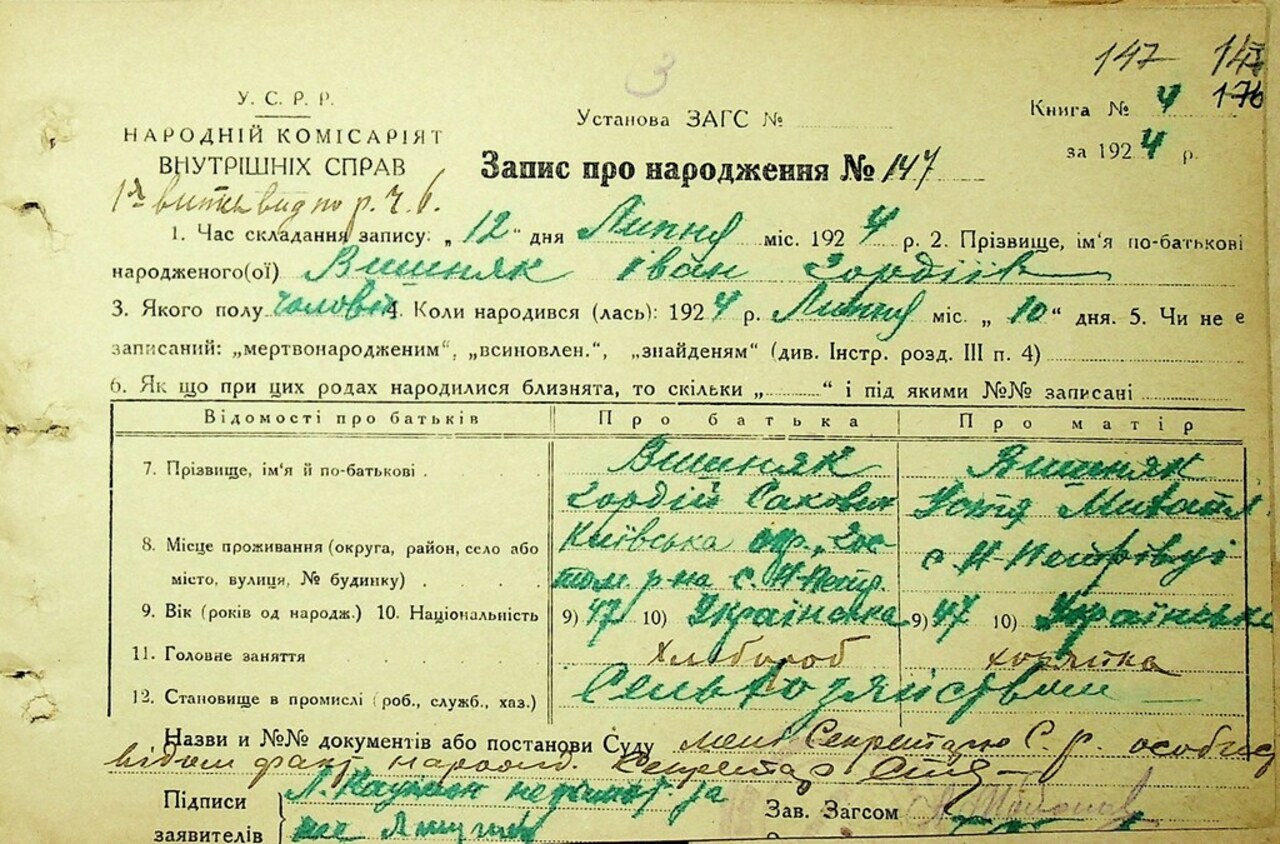 147 147
176
3
У. С. Р. Р.
НАРОДНІЙ КОМІСАРІЯТ
ВНУТРІШНІХ СПРАВ
Установа ЗАГС №
Книга № 4
за 1924 р.
Запис про народження № 147
1. Час складання запису: „12“ дня Липня міс. 1924 р. 2. Прізвище, ім'я по-батькові
народженого(ої) Вишняк Іван Гордіїв
3. Якого полу чоловік 4. Коли народився (лась): 1924 р. Липня міс. „10“ дня. 5. Чи не є
записаний: „мертвонародженим“, „всиновлен.“, „знайденям“ (див. Інстр. розд. III п. 4)
6. Як що при цих родах народилися близнята, то скільки „ “ і під якими №№ записані
Відомості про батьків Про батька Про матір
7. Прізвище, ім'я й по-батькові Вишняк Вишняк
Гордій Сакович Устя Михайл.
8. Місце проживання (округа, район, село або Київська окр., Гос с. Н-Петрівці
місто, вулиця, № будинку) том. р-на с. Н-Петр.
9. Вік (років од народж.) 10. Національність 9) 47 10) Українська 9) 47 10) Українська
11. Головне заняття Хлібороб хозяйка
12. Становище в промислі (роб., служб., хаз.) Сельхозяйством
Назви и №№ документів або постанови Суду мені Секретарю С. р. особисто
відом факт народж. Секретар
Підписи
заявителів
Зав. Загсом